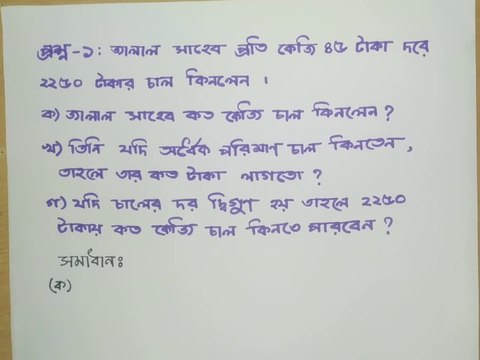 প্রশ্ন-১: জালাল সাহেব প্রতি কেজি ৪৫ টাকা দরে
২২৫০ টাকার চাল কিনলেন।
ক) জালাল সাহেব কত কেজি চাল কিনলেন?
খ) তিনি যদি অর্ধেক পরিমাণ চাল কিনতেন,
তাহলে তার কত টাকা লাগতো?
গ) যদি চালের দর দ্বিগুণ হয় তাহলে ২২৫০
টাকায় কত কেজি চাল কিনতে পারবেন?
সমাধানঃ
(ক)